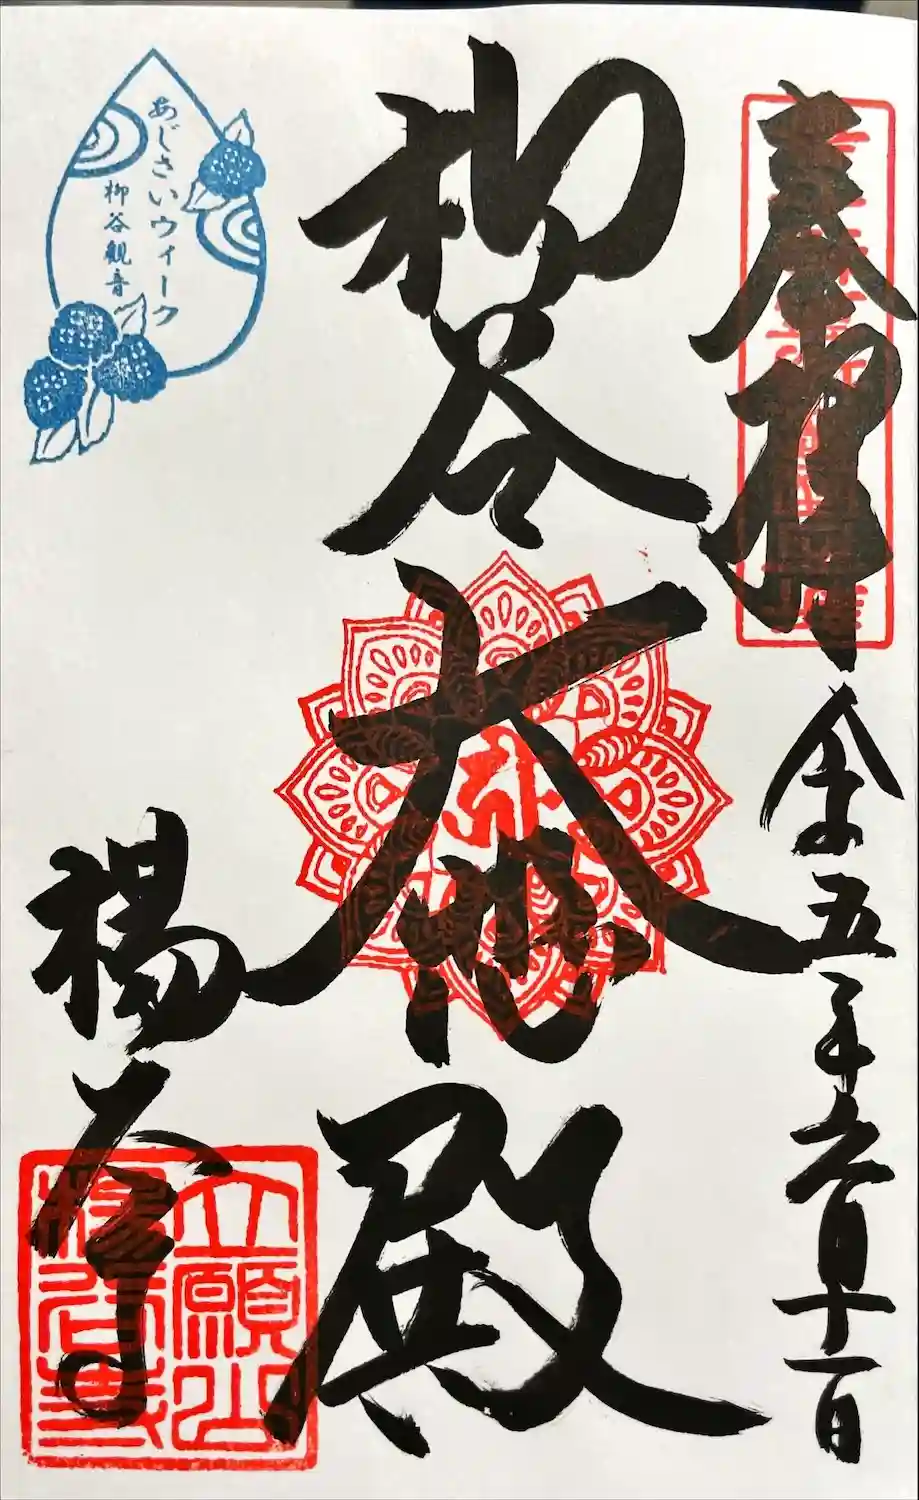 奉拝
令五年六月十一日
柳谷
大悲殿
楊谷寺
立願山
楊谷寺
あじさいウィーク
柳谷観音